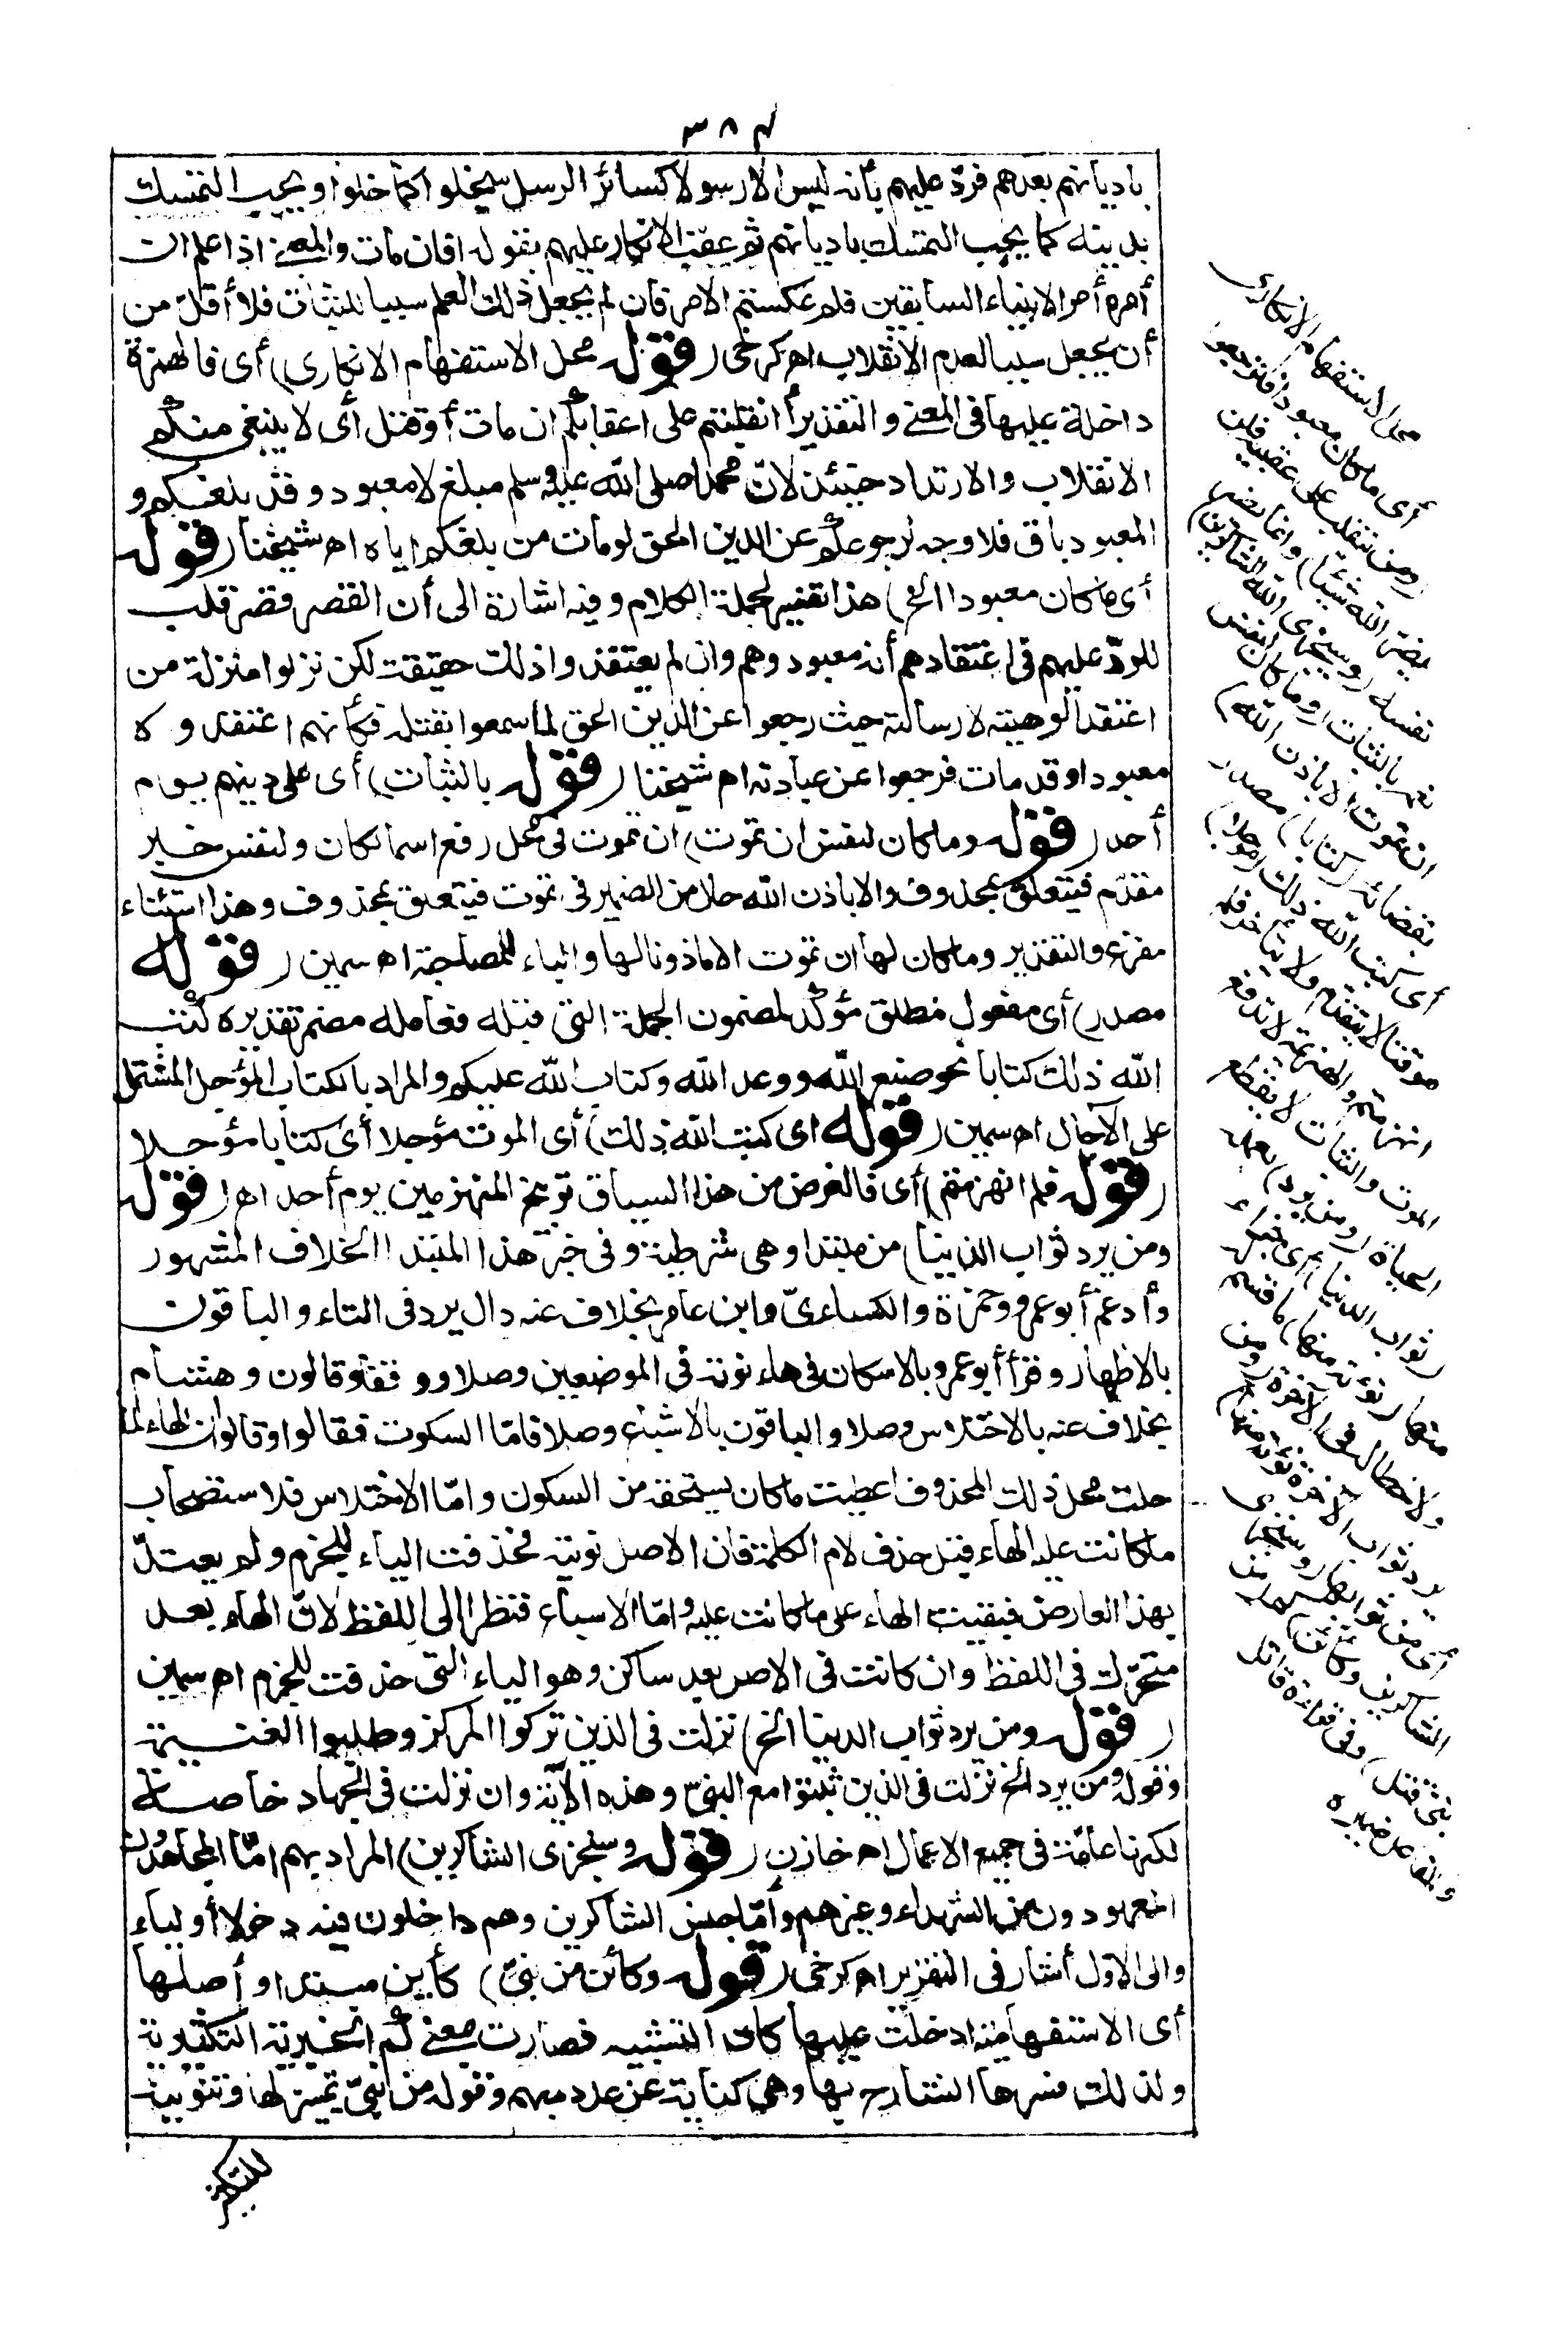 ٣٨٤
باديانهم بعدهم فردّ عليهم بأنه ليس الا رسولا كسائر الرسل سيخلوا كما خلوا ويجب التمسك
بدينه كما يجب التمسك باديانهم ثم عقب الانكار عليهم بقوله افان مات والمعنى اذا علم ان
أمره أمر الانبياء السابقين فلم عكستم الامر فان لم يجعل ذلك العلم سببا للثبات فلا أقل من
أن يجعل سببا لعدم الانقلاب اهـ كرخى (قوله محل الاستفهام الانكارى) أى فالهمزة
داخلة عليها فى المعنى والتقدير أانقلبتم على اعقابكم ان مات أو قتل أى لا ينبغى منكم
الانقلاب والارتداد حينئذ لانّ محمدا صلى الله عليه وسلم مبلغ لا معبود وقد بلغكم و
المعبود باق فلا وجه لرجوعكم عن الدين الحق لو مات من بلغكم اياه اهـ شيخنا (قوله
أى ما كان معبودا الخ) هذا تفسير لجملة الكلام وفيه اشارة الى أن القصر قصر قلب
للردّ عليهم فى اعتقادهم أنه معبود وهم وان لم يعتقدوا ذلك حقيقة لكن نزلوا منزلة من
اعتقد ألوهيته لا رسالته حيث رجعوا عن الدين الحق لما سمعوا بقتله فكأنهم اعتقدوه
معبودا وقد مات فرجعوا عن عبادته اهـ شيخنا (قوله بالثبات) أى على دينهم يوم
أحد (قوله وما كان لنفس ان تموت) ان تموت فى محل رفع اسما لكان ولنفس خبر
مقدّم فيتعلق بمحذوف والا باذن الله حال من الضمير فى تموت فيتعلق بمحذوف وهذا استثناء
مفرغ والتقدير وما كان لها ان تموت الا ماذونا لها والباء للمصاحبة اهـ سمين (قوله
مصدر) أى مفعول مطلق مؤكد لمضمون الجملة التى قبله فعامله مضمر تقديره كتب
الله ذلك كتابا نحو صنع الله ووعد الله وكتاب الله عليكم والمراد بالكتاب المؤجل المشتمل
على الآجال اهـ سمين (قوله اى كتب الله ذلك) أى الموت مؤجلا أى كتابا مؤجلا
(قوله فلم انهزمتم) أى فالغرض من هذا السياق توبيخ المنهزمين يوم أحد اهـ (قوله
ومن يرد ثواب الدنيا) من مبتدا وهى شرطية وفى خبر هذا المبتدا الخلاف المشهور
وأدغم أبو عمرو وحمزة والكساءى وابن عامر بخلاف عنه دال يرد فى التاء والباقون
بالاظهار وقرأ أبو عمرو بالاسكان فى هاء نوته فى الموضعين وصلا ووقفا وقالون وهشام
بخلاف عنه بالاختلاس وصلا والباقون بالاشباع وصلا فامّا السكون فقالوا وقالوا ان الهاء لما
حلت محل ذلك المحذوف اعطيت ما كان يستحقه من السكون وامّا الاختلاس فلاستصحاب
ما كانت عليه الهاء قبل حذف لام الكلمة فان الاصل نوتيه فحذفت الياء للجزم ولم يعتدّ
بهذا العارض فبقيت الهاء على ما كانت عليه وامّا الاشباع فنظرا الى اللفظ لانّ الهاء بعد
متحرّك فى اللفظ وان كانت فى الاصل بعد ساكن وهو الياء التى حذفت للجزم اهـ سمين
(قوله ومن يرد ثواب الدنيا الخ) نزلت فى الذين تركوا المركز وطلبوا الغنيمة
وقوله ومن يرد الخ نزلت فى الذين ثبتوا مع النبىّ وهذه الآية وان نزلت فى الجهاد خاصة
لكنها عامّة فى جميع الاعمال اهـ خازن (قوله وسنجزى الشاكرين) المراد بهم امّا المجاهدون
المعهودون من الشهداء وغيرهم وأمّا جنس الشاكرين وهم داخلون فيه دخولا أوليا
والى الاول أشار فى التقرير اهـ كرخى (قوله وكائن من نبىّ) كأين مبتدا وأصلها
أى الاستفهامية ادخلت عليها كاف التشبيه فصارت بمعنى كم الخبرية التكثيرية
ولذلك فسرها الشارح بها وهى كناية عن عدد مبهم وقوله من نبىّ تمييز لها وتنوينه
للتكثير
محل الاستفهام الانكارى
أى ما كان معبودا فترجعوا
(ومن ينقلب على عقبيه فلن
يضر الله شيئا) وانما يضر
نفسه (وسيجزى الله الشاكرين)
نعمه بالثبات (وما كان لنفس
ان تموت الا باذن الله)
بقضائه (كتابا) مصدر
أى كتب الله ذلك (مؤجلا)
موقتا لا يتقدم ولا يتأخر فلم
انهزمتم والهزيمة لا تدفع
الموت والثبات لا يقطع
الحياة (ومن يرد) بعمله
(ثواب الدنيا) أى جزاءه
منها (نؤته منها) ما قسم له
ولا حظ له فى الآخرة (ومن
يرد ثواب الآخرة نؤته منها)
أى من ثوابها (وسنجزى
الشاكرين وكائن) كم (من
نبى قتل) وفى قراءة قاتل
والفاعل ضميره